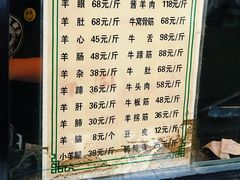 羊眼 68元/斤 酱羊肉 118元/斤
羊肚 68元/斤 牛窝骨筋 68元/斤
羊心 45元/斤 牛舌 98元/斤
羊肠 48元/斤 牛蹄筋 58元/斤
羊杂 38元/斤 牛肚 68元/斤
羊蹄 38元/斤 牛头肉 58元/斤
羊肝 36元/斤 牛板筋 48元/斤
羊肺 30元/斤 羊拐筋 36元/斤
羊脑 8元/个 豆皮
小羊腿 38元/斤